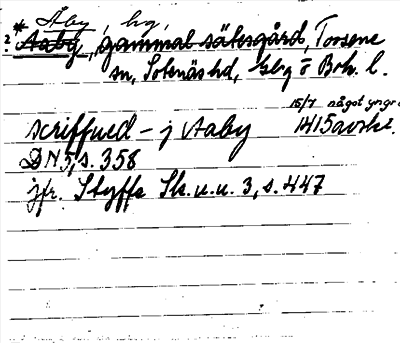 Åby, hg,
? * Aaby, gammal sätesgård, Torsene
sn, Sotenäs hd, Gbg o Boh. l.
15/7 något yngre
scriffued - j Aaby 1415 avskr.
DN 5, s. 358
jfr. Styffe Sk. u. u. 3, s. 447